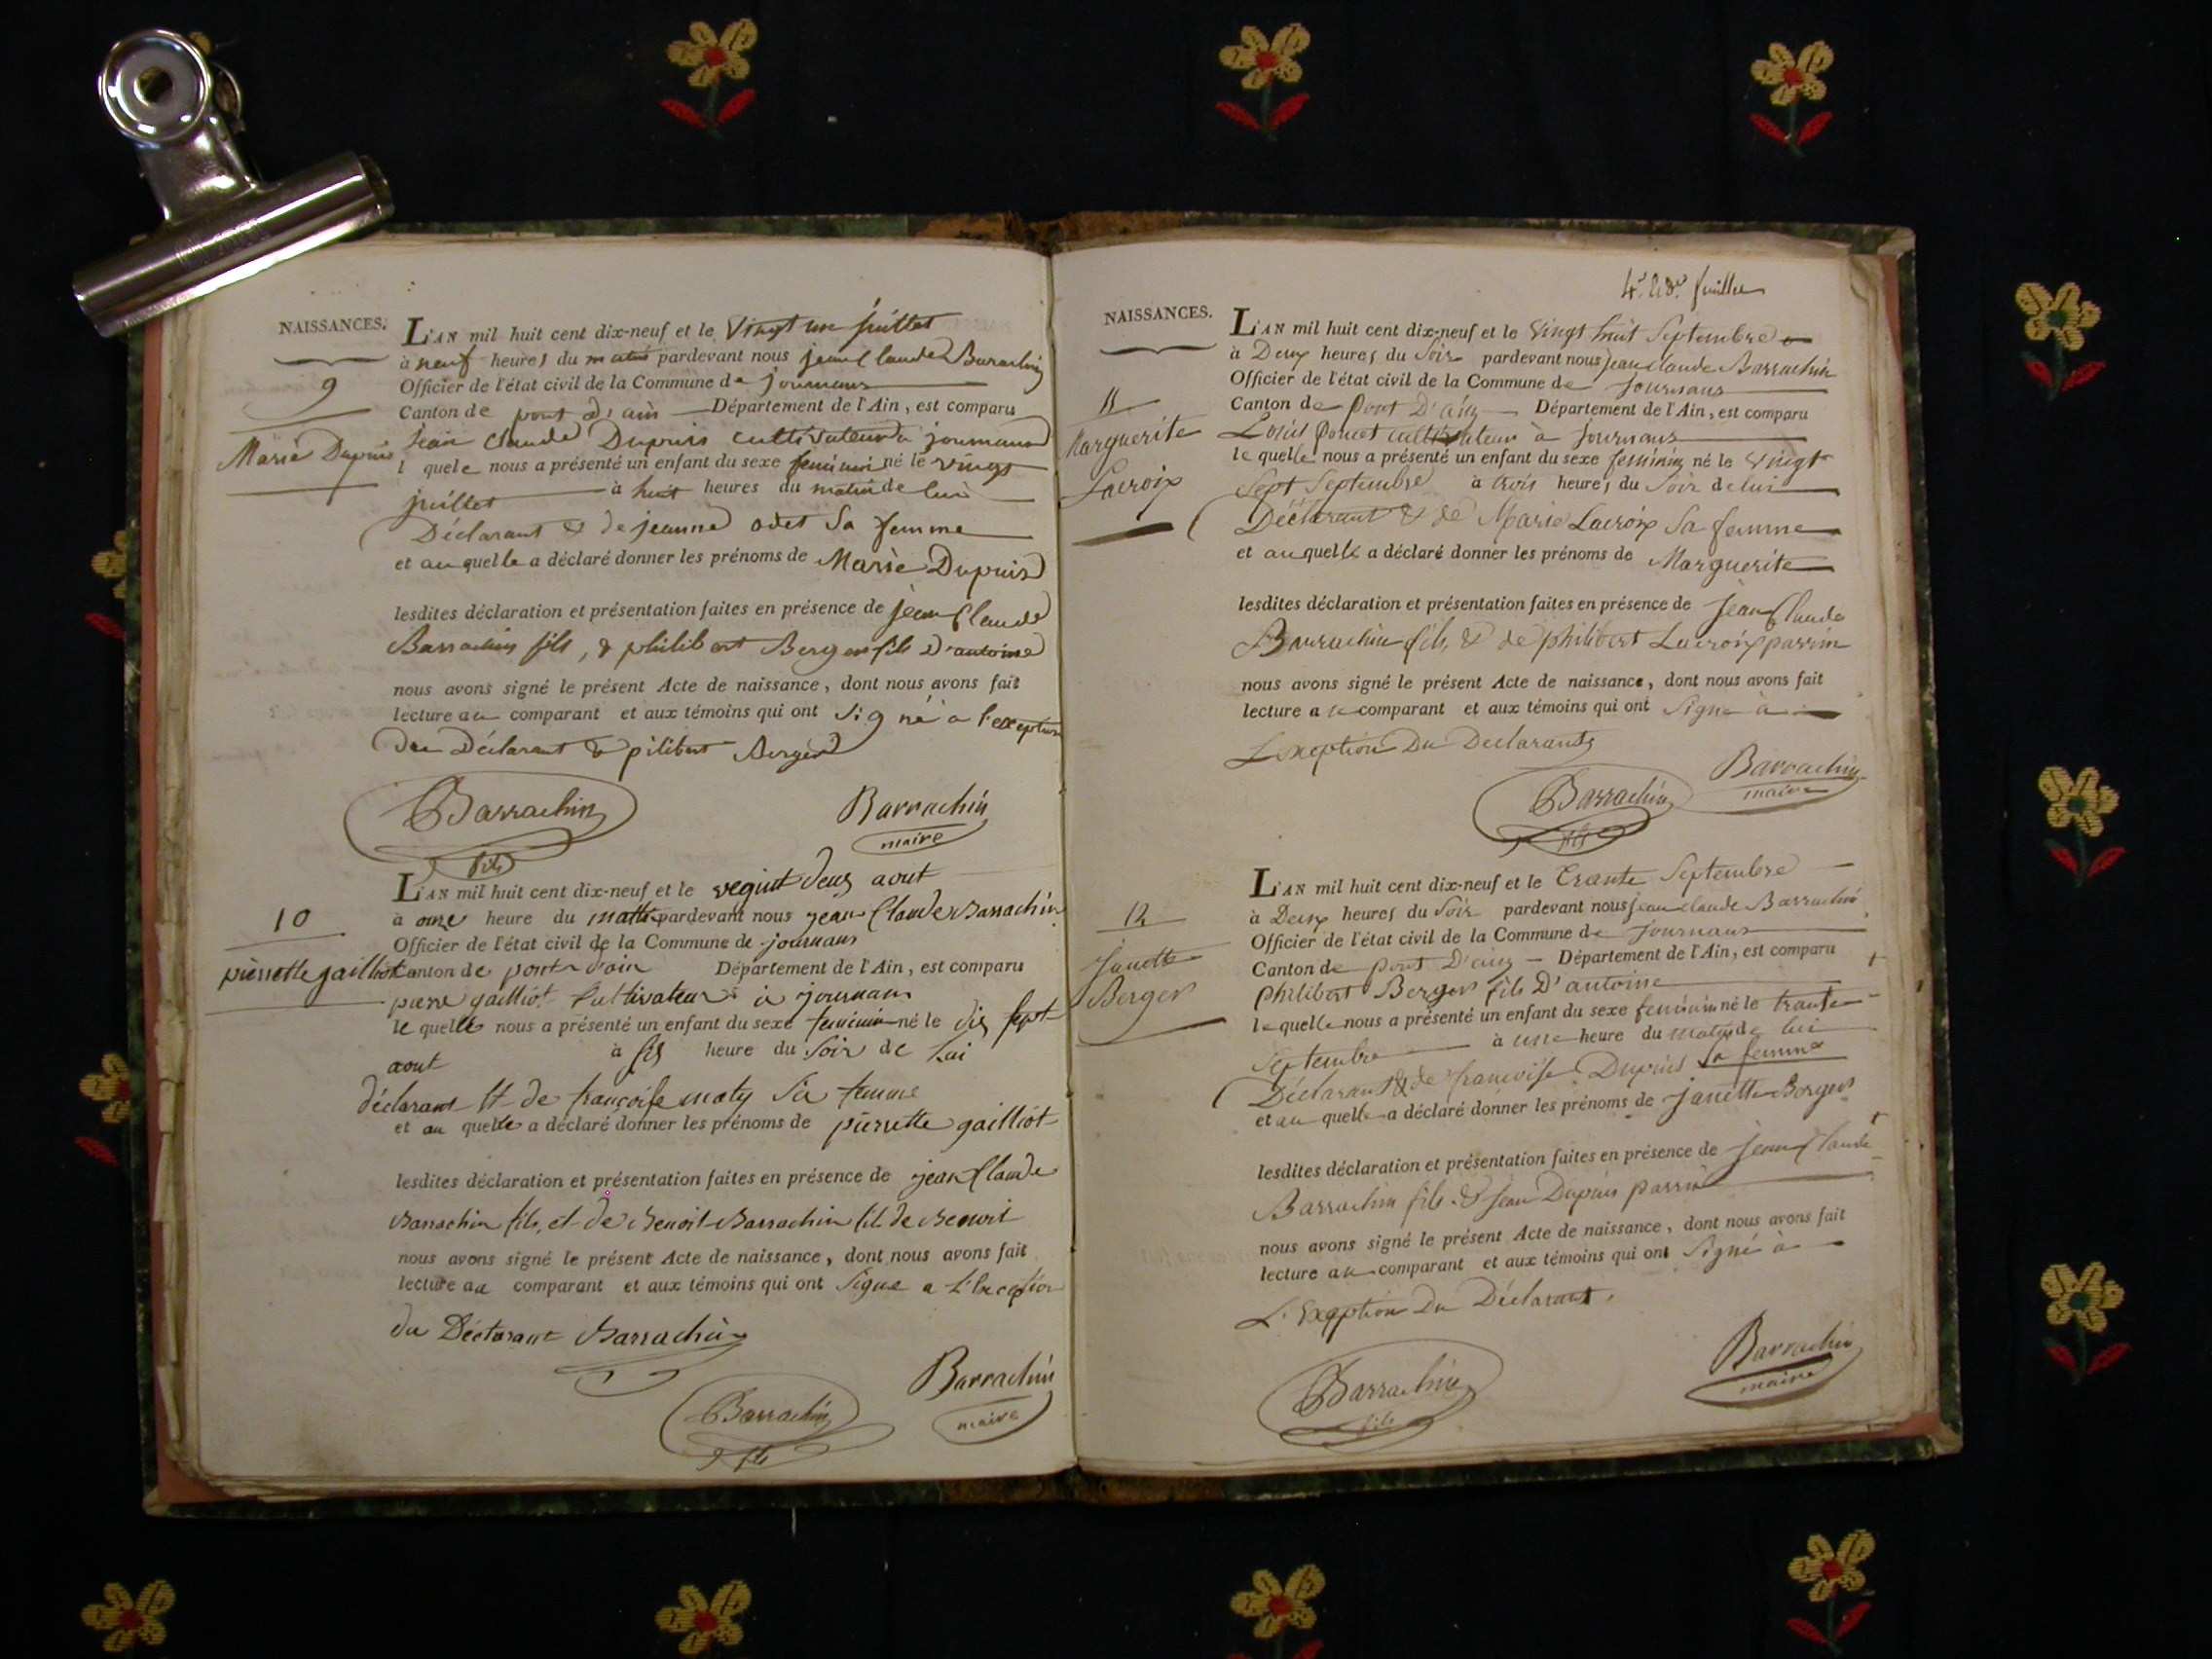 NAISSANCES.
9
Marie Dupuis
L'AN mil huit cent dix-neuf et le Vingt un juillet
à neuf heures du matin pardevant nous jean Claude Barrachin
Officier de l'état civil de la Commune de journans
Canton de pont d'ain Département de l'Ain, est comparu
jean Claude Dupuis cultivateur à journans
l quele nous a présenté un enfant du sexe feminin né le vingt
juillet à huit heures du matin de lui
Déclarant & de jeanne odet Sa femme
et au quelle a déclaré donner les prénoms de Marie Dupuis
lesdites déclaration et présentation faites en présence de jean Claude
Barrachin fils, & philibert Berger fils d'antoine
nous avons signé le présent Acte de naissance, dont nous avons fait
lecture au comparant et aux témoins qui ont Signé a l'exception
du Déclarant & pilibert Berger
Barrachin
fils
Barrachin
maire
10
pierrette gailliot
L'AN mil huit cent dix-neuf et le vegint deux aout
à onze heure du matin pardevant nous jean Claude Barrachin
Officier de l'état civil de la Commune de journans
Canton de pont d'ain Département de l'Ain, est comparu
pierre gailliot Cultivateur à journans
le quelle nous a présenté un enfant du sexe feminin né le dix sept
aout à six heure du Soir de Lui
déclarant et de françoise maty Sa femme
et au quelle a déclaré donner les prénoms de pierrette gailliot
lesdites déclaration et présentation faites en présence de jean Claude
Barrachin fils, et de Benoit Barrachin fils de Benoit
nous avons signé le présent Acte de naissance, dont nous avons fait
lecture au comparant et aux témoins qui ont Signe a L'Exception
du Déclarant Barrachin
Barrachin
fils
Barrachin
maire
feuillet
NAISSANCES.
11
Marguerite
Lacroix
L'AN mil huit cent dix-neuf et le Vingt huit Septembre
à Deux heures du Soir pardevant nous jean Claude Barrachin
Officier de l'état civil de la Commune de Journans
Canton de Pont D'ain Département de l'Ain, est comparu
Louis Poncet cultivateur à Journans
le quelle nous a présenté un enfant du sexe feminin né le Vingt
Sept Septembre à trois heures du Soir de lui
Déclarant & de Marie Lacroix Sa femme
et au quelle a déclaré donner les prénoms de Marguerite
lesdites déclaration et présentation faites en présence de Jean Claude
Barrachin fils, & de philibert Lacroix parrin
nous avons signé le présent Acte de naissance, dont nous avons fait
lecture au comparant et aux témoins qui ont Signé à
L'exeption Du Déclarant
Barrachin
fils
Barrachin
maire
12
Janette
Berger
L'AN mil huit cent dix-neuf et le Trante Septembre
à Deux heures du Soir pardevant nous jean Claude Barrachin
Officier de l'état civil de la Commune de Journans
Canton de Pont D'ain Département de l'Ain, est comparu
Philibert Berger fils D'antoine
le quelle nous a présenté un enfant du sexe feminin né le trante
Septembre à une heure du matin de lui
Déclarant & de françoise Dupuis Sa femme
et au quelle a déclaré donner les prénoms de Janette Berger
lesdites déclaration et présentation faites en présence de Jean Claude
Barrachin fils & Jean Dupuis parrin
nous avons signé le présent Acte de naissance, dont nous avons fait
lecture au comparant et aux témoins qui ont Signé à
L'Exeption Du Déclarant.
Barrachin
fils
Barrachin
maire